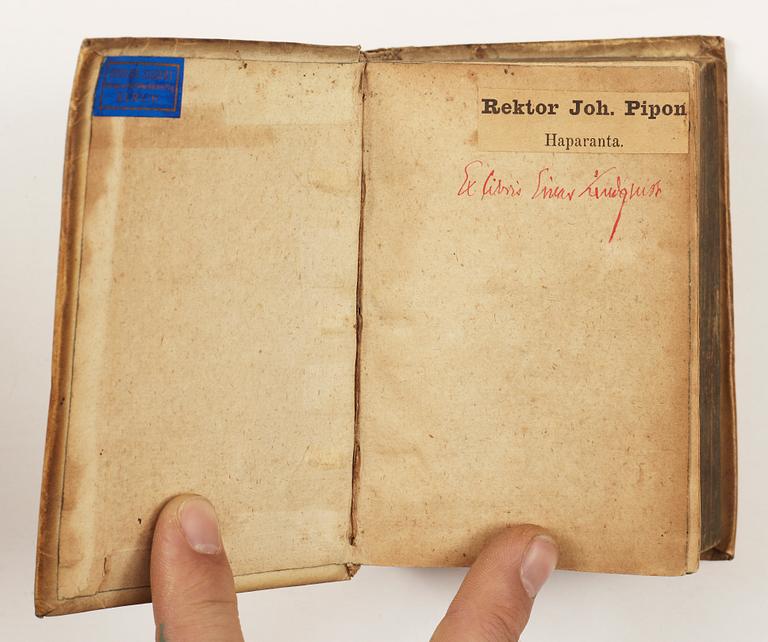 Rektor Joh. Pipon
Haparanta.
Ex libris Einar Lindquist